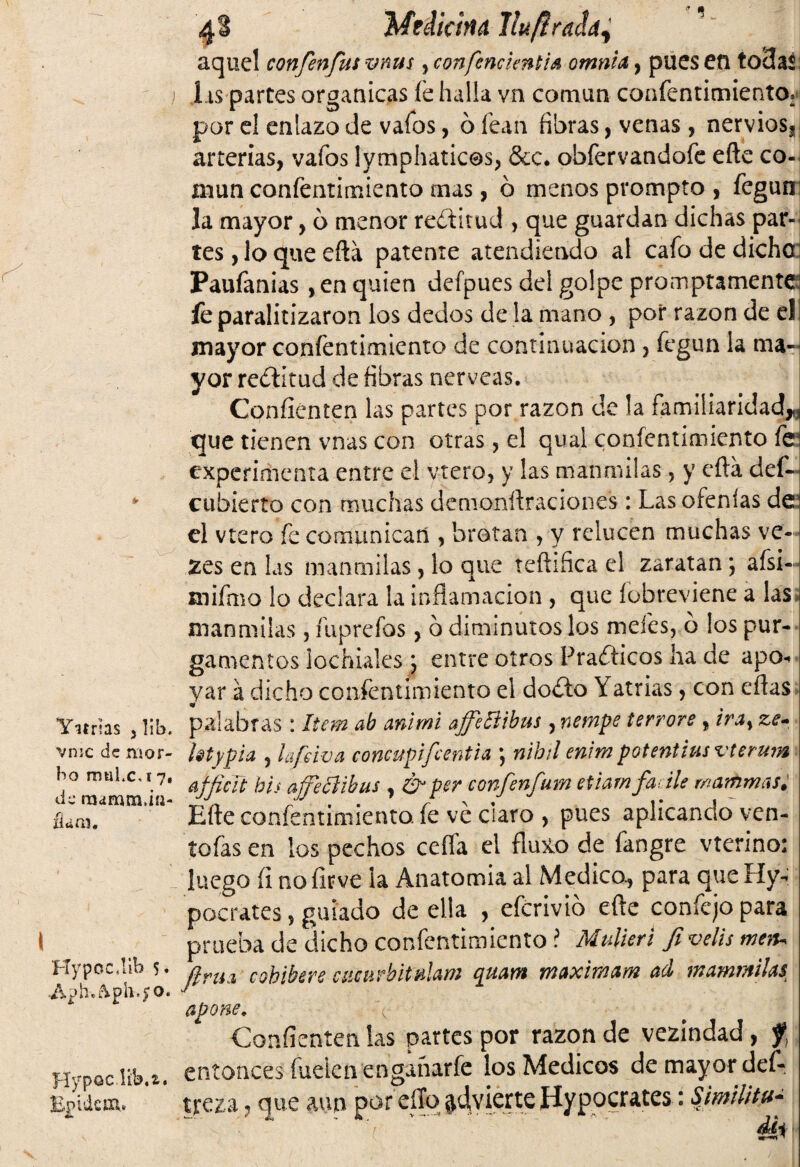 48 Medicina Iluſtrada,
aquel conſenſus vnus, conſencientia omnia, pues en todas
las partes organicas ſe halla vn comun conſentimiento,
por el enlazo de vaſos, ò ſean fibras, venas, nervios,
arterias, vaſos lymphaticos, &c. obſervandoſe eſte co-
mun conſentimiento mas, ò menos prompto, ſegun
la mayor, ò menor rectitud, que guardan dichas par-
tes, lo que eſtà patente atendiendo al caſo de dicho
Pauſanias, en quien deſpues del golpe promptamente
ſe paralitizaron los dedos de la mano, por razon de el
mayor conſentimiento de continuacion, ſegun la ma-
yor rectitud de fibras nerveas.
Conſienten las partes por razon de la familiaridad,
que tienen vnas con otras, el qual conſentimiento ſe
experimenta entre el vtero, y las manmilas, y eſtà deſ-
cubierto con muchas demonſtraciones: Las ofenſas de
el vtero ſe comunican, brotan, y relucen muchas ve-
zes en las manmilas, lo que teſtifica el zaratan; aſsi-
miſmo lo declara la inflamacion, que ſobreviene a las
manmilas, ſupreſos, ò diminutos los meſes, ò los pur-
gamentos lochiales; entre otros Practicos ha de apo-
yar à dicho conſentimiento el docto Yatrias, con eſtas
Yatrias, lib.
vnic de mor-
bo mul.c.17.
de mamm.in-
flam.
palabras: Item ab animi affectibus, nempe terrore, ira, ze-
lotypia, laſciva concupiſcentia; nihil enim potentius vterum
afficit his affectibus, & per conſenſum etiam facile mammas.
Eſte conſentimiento ſe vè claro, pues aplicando ven-
toſas en los pechos ceſſa el fluxo de ſangre vterino:
luego ſi no ſirve la Anatomia al Medico, para que Hy-
pocrates, guiado de ella, eſcriviò eſte conſejo para
prueba de dicho conſentimiento? Mulieri ſi velis men-
Hypoc.lib 5.
Aph.Aph.50.
ſtrua cohibere cucurbitulam quam maximam ad mammilas
apone.
Conſienten las partes por razon de vezindad, y
Hypoc lib.2.
Epidem.
entonces ſuelen engañarſe los Medicos de mayor deſ-
treza, que aun por eſſo advierte Hypocrates: Similitu-
di-